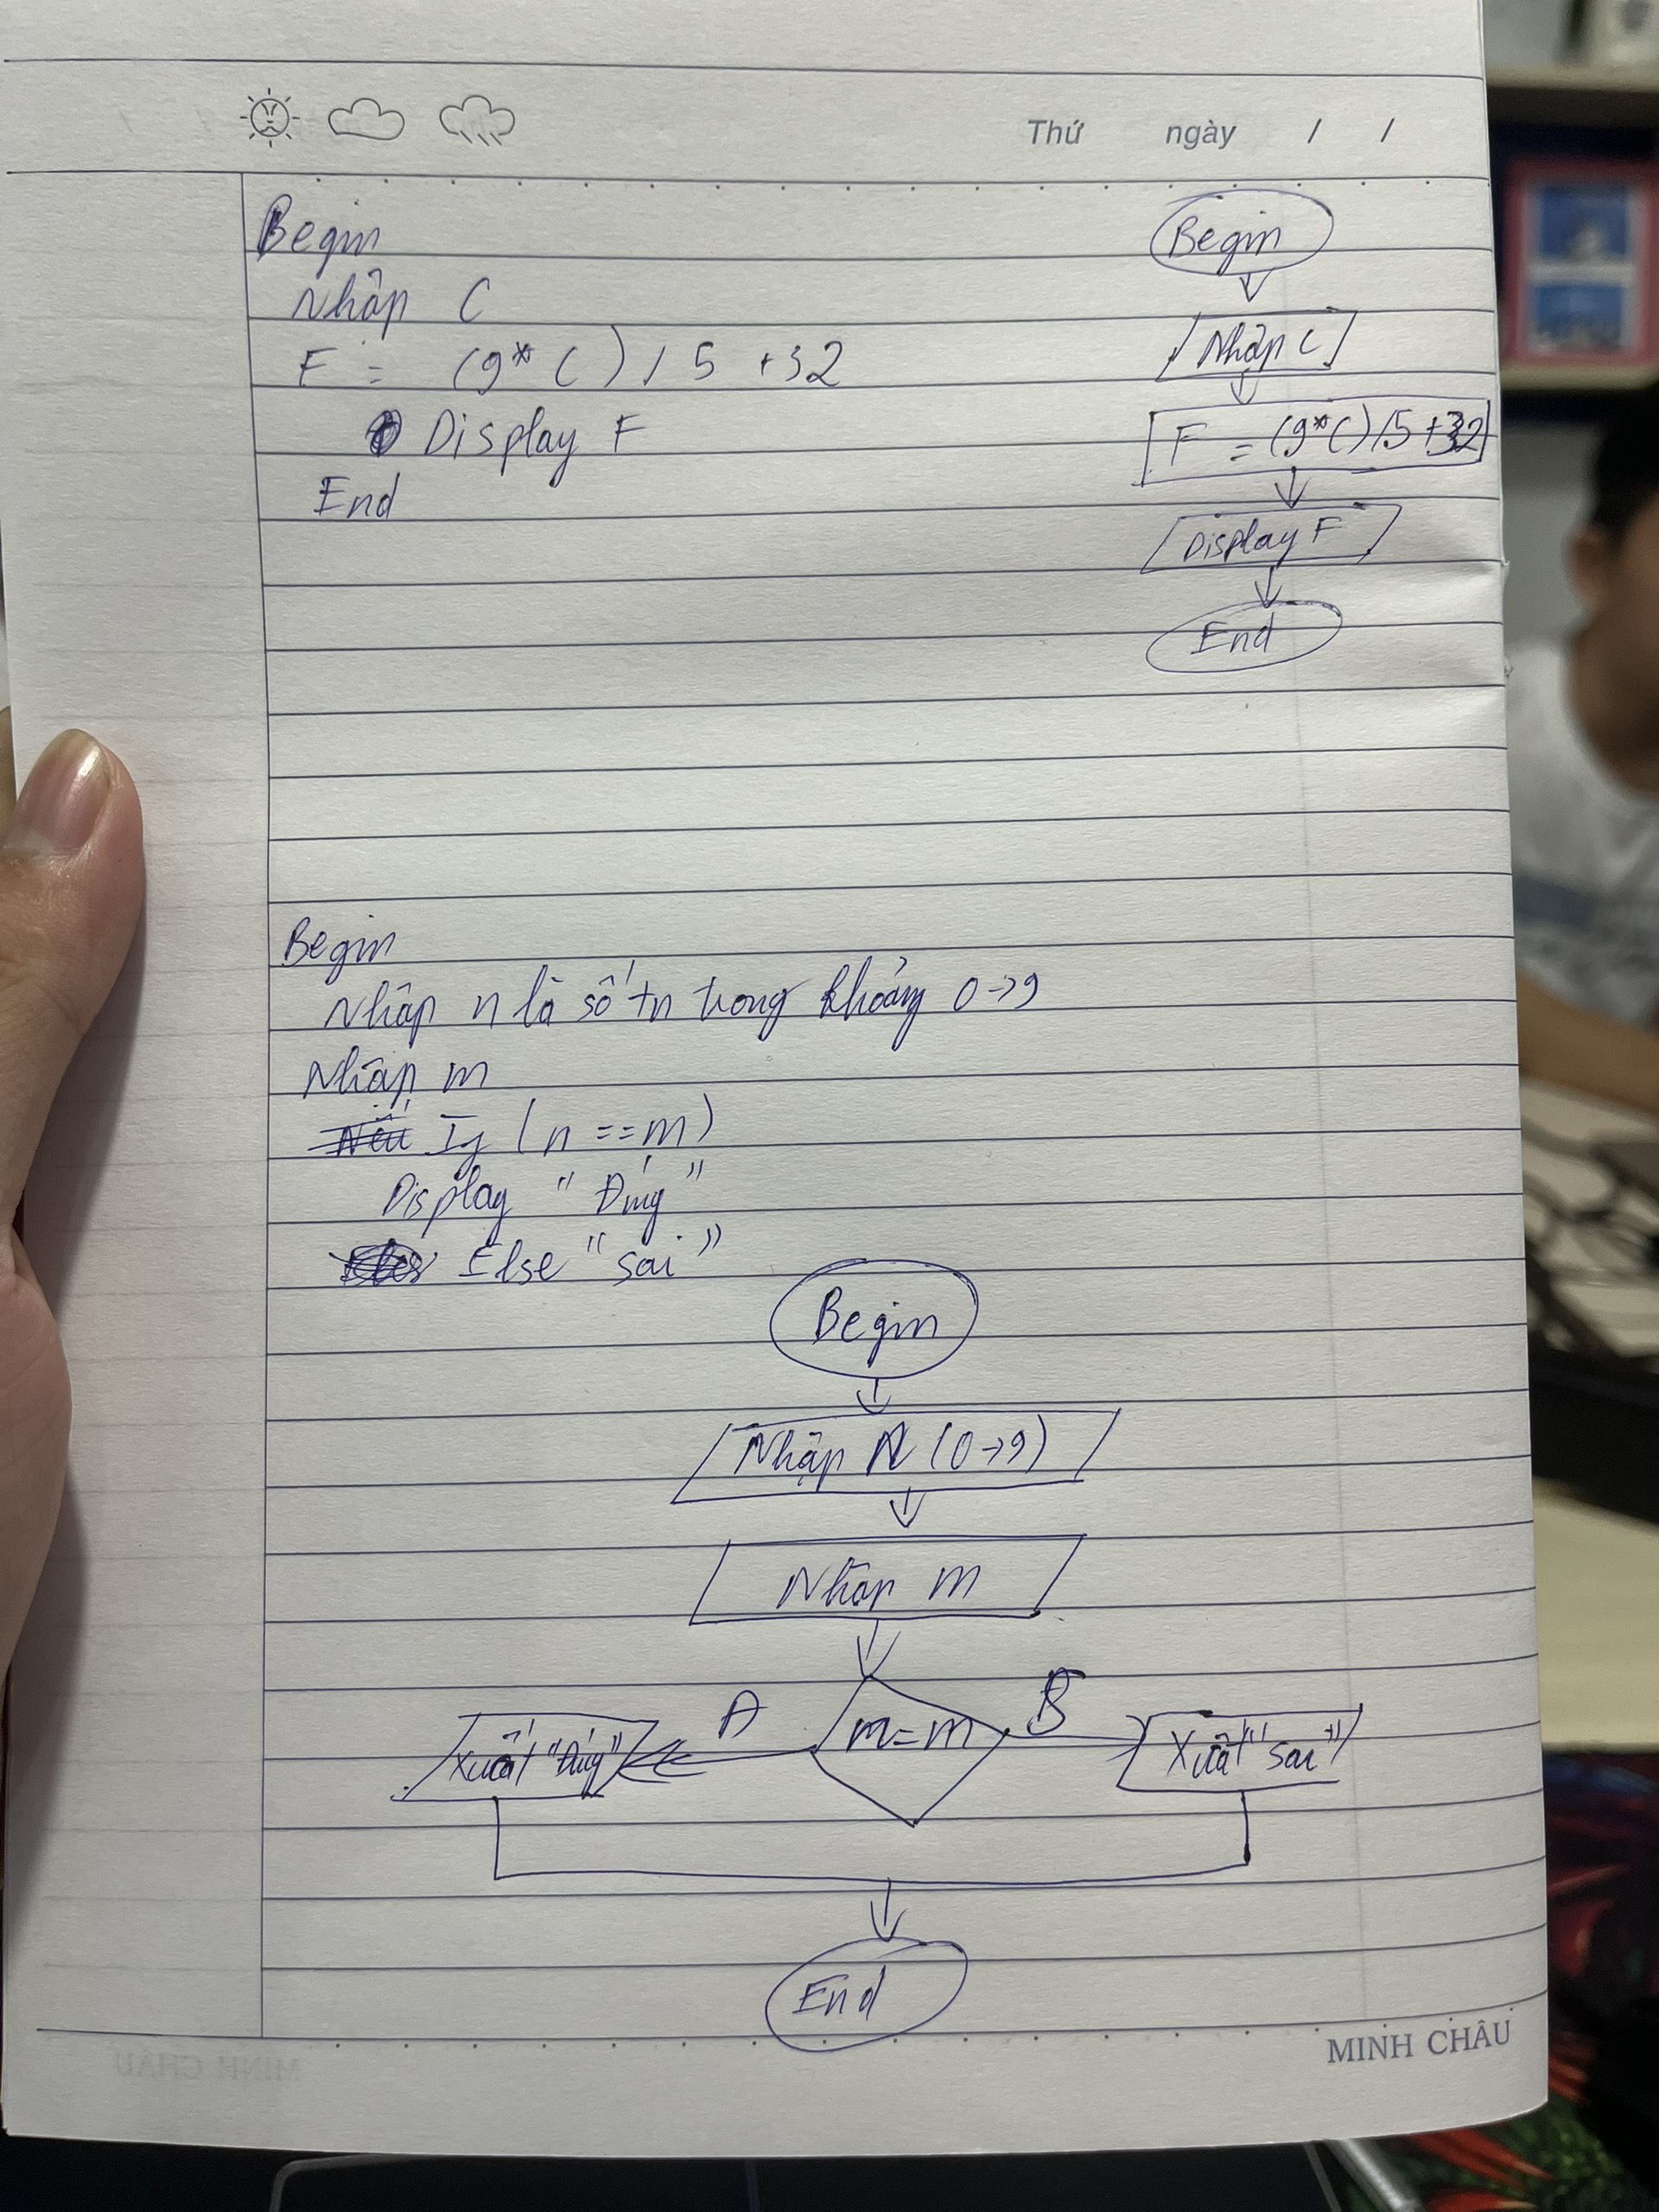 Thứ ngày / /
Begin
Nhập C
F = (9* C) / 5 +32
Display F
End
Begin
Nhập C
F = (9* C) /5 +32
Display F
End
Begin
Nhập n là số tn trong khoảng 0->9
Nhập m
If (n == m)
Display "Đúng"
Else "sai"
Begin
Nhập N (0->9)
Nhập m
A
m = m
B
Xuất "Đúng"
Xuất "sai"
End
MINH CHÂU